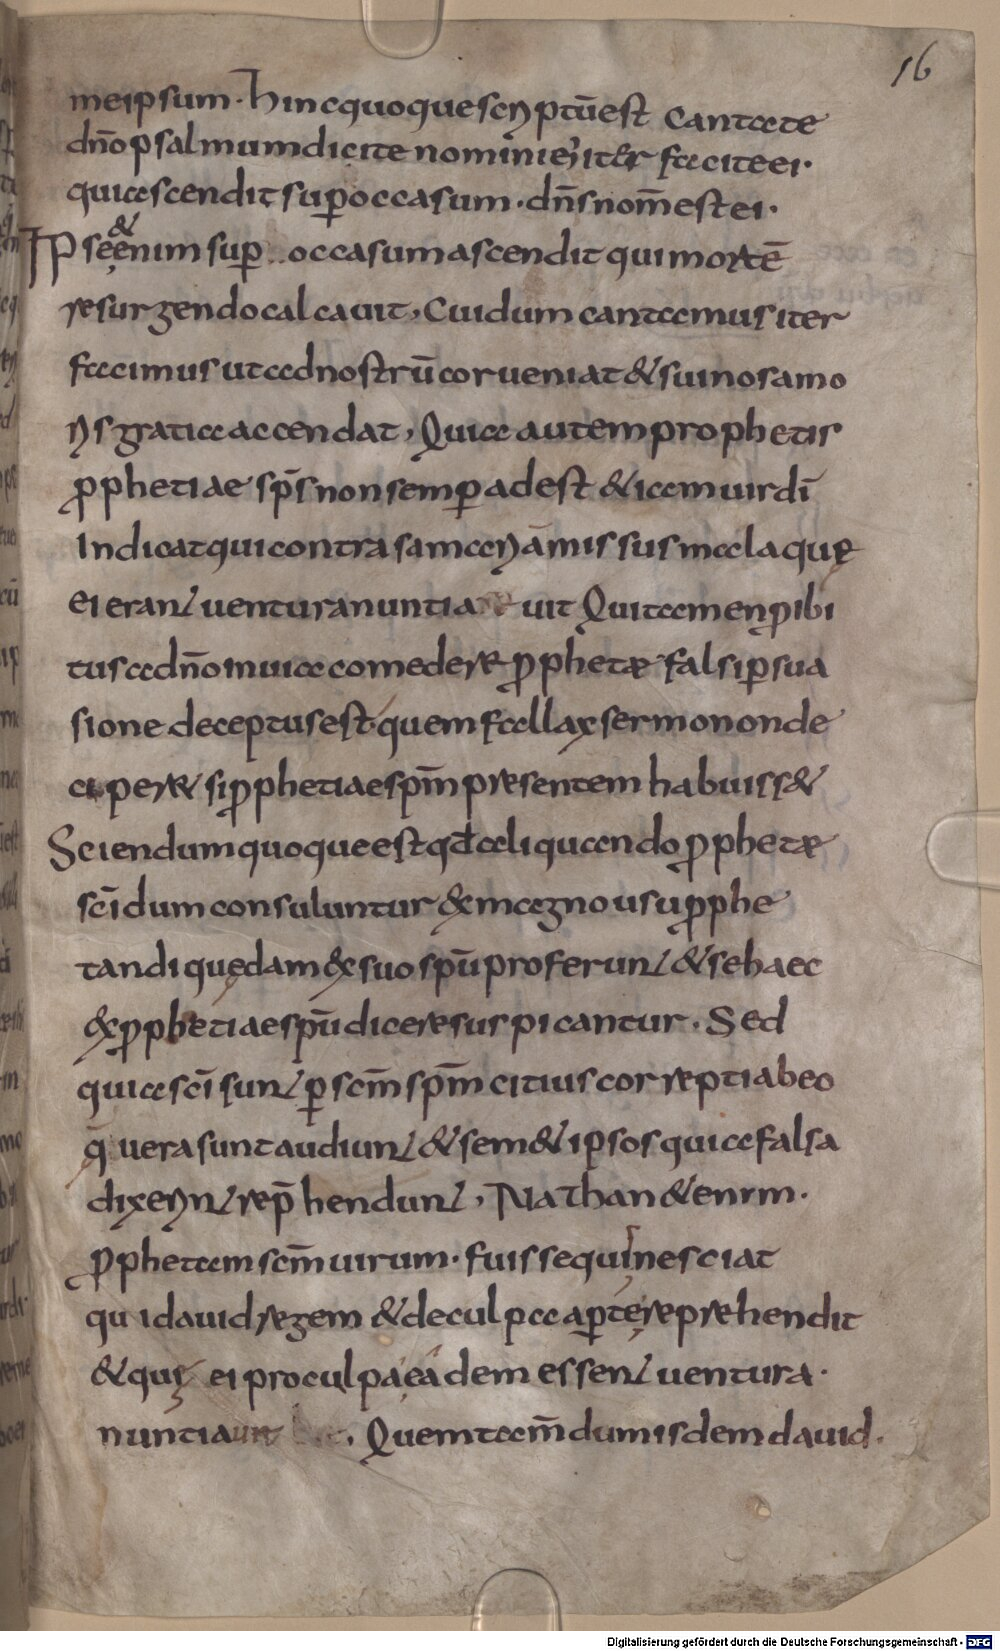 16
meipsum. hinc quoque scriptū est Cantate
dn̄o psalmum dicite nomini ei' iter facite ei.
qui ascendit suꝑ occasum. dn̄s nom̄ est ei.
&
Ipse enim suꝑ occasum ascendit qui mortē
resurgendo calcauit, Cui dum cantamus iter
facimus ut ad nostrū cor ueniat & sui nos amo
ris gratia accendat, Quia autem prophetis
ꝓphetiae sp̄s non semꝑ adest & iam uir dī
Indicat qui contra samariā missus mala quę
ei erant uentura nuntia uit Qui tamen ꝓibi
tus a dn̄o in uia comedere ꝓphetæ falsi ꝑsua
sione deceptus est. quem fallax sermo non de
ciperet si ꝓphetiae spm̄ presentem habuiss&
Sciendum quoque est qđ aliquando ꝓphetæ
scī dum consuluntur ex magno usu ꝓphe
tandi quędam ex suo spū proferunt & se haec
ex ꝓphetiae spū dicere suspicantur. Sed
quia scī sunt ꝑ scm̄ spm̄ citius correpti ab eo
q̄ uera sunt audiunt & sem&ipsos quia falsa
dixerint rep̄hendunt, Nathan &enim.
ꝓphetam scm̄ uirum. fuisse quis nesciat
qui dauid regem & de culpa aꝑte reprehendit
& quę ei pro culpa eadem essent uentura.
nuntiauit. Quem tam̄ dum isdem dauid.
Digitalisierung gefördert durch die Deutsche Forschungsgemeinschaft - DFG